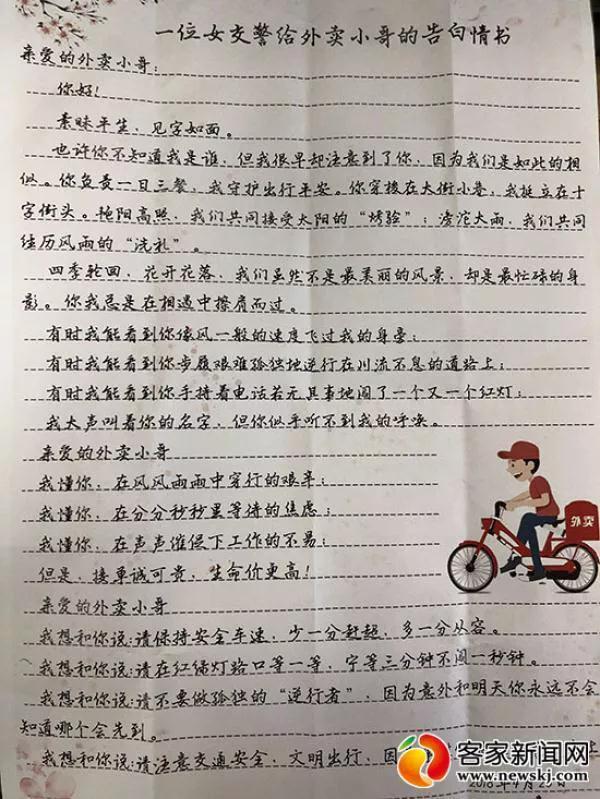 一位女交警给外卖小哥的告白情书
亲爱的外卖小哥：
你好！
素昧平生，见字如面。
也许你不知道我是谁，但我很早却注意到了你，因为我们是如此的相
似。你负责一日三餐，我守护出行平安。你穿梭在大街小巷，我挺立在十
字街头。艳阳高照，我们共同接受太阳的“烤验”；滂沱大雨，我们共同
经历风雨的“洗礼”。
四季轮回，花开花落，我们虽然不是最美丽的风景，却是最忙碌的身
影。你我总是在相遇中擦肩而过。
有时我能看到你像风一般的速度飞过我的身旁；
有时我能看到你步履艰难孤独地逆行在川流不息的道路上；
有时我能看到你手持着电话若无其事地闯了一个又一个红灯；
我大声叫着你的名字，但你似乎听不到我的呼唤。
亲爱的外卖小哥
我懂你，在风风雨雨中穿行的艰辛；
我懂你，在分分秒秒里等待的焦虑；
我懂你，在声声催促下工作的不易；
但是，接单诚可贵，生命价更高！
外卖
亲爱的外卖小哥
我想和你说：请保持安全车速，少一分赶超，多一分从容。
我想和你说：请在红绿灯路口等一等，宁等三分钟不闯一秒钟。
我想和你说：请不要做孤独的“逆行者”，因为意外和明天你永远不会
知道哪个会先到。
我想和你说：请注意交通安全，文明出行，因
2018年4月25日
客家新闻网
www.newskj.com